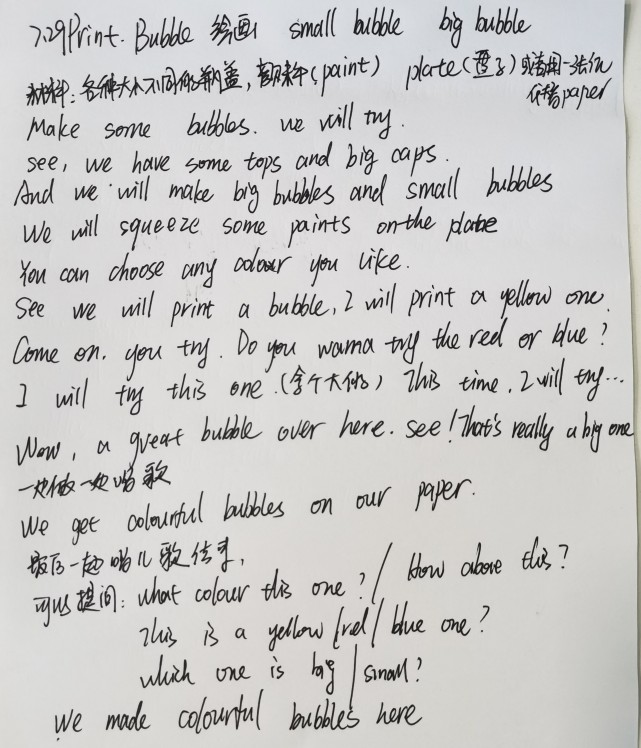 7.29 Print. Bubble 绘画 small bubble big bubble
材料：各种大小不同的瓶盖，颜料(paint) plate(盘子)或者用一张纸
paper
Make some bubbles. we will try.
see, we have some tops and big caps.
And we will make big bubbles and small bubbles
We will squeeze some paints on the plate
You can choose any colour you like.
See we will print a bubble, I will print a yellow one.
Come on. you try. Do you wanna try the red or blue?
I will try this one.(拿个大的) This time, I will try...
Wow, a great bubble over here. see! That's really a big one
一边做一边唱歌
We get colourful bubbles on our paper.
最后一起唱儿歌结束,
可以提问: what colour this one? / How above this?
This is a yellow /red / blue one?
which one is big / small?
We made colourful bubbles here